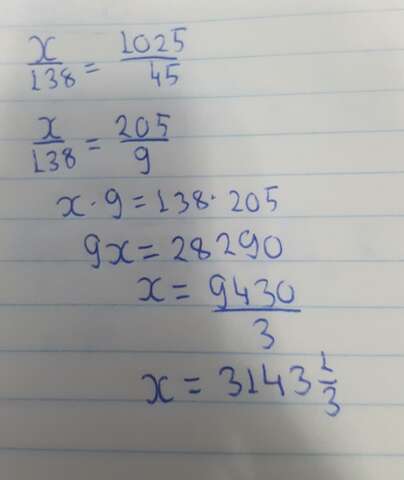 x/138 = 1025/45
x/138 = 205/9
x · 9 = 138 · 205
9x = 28290
x = 9430/3
x = 3143 1/3